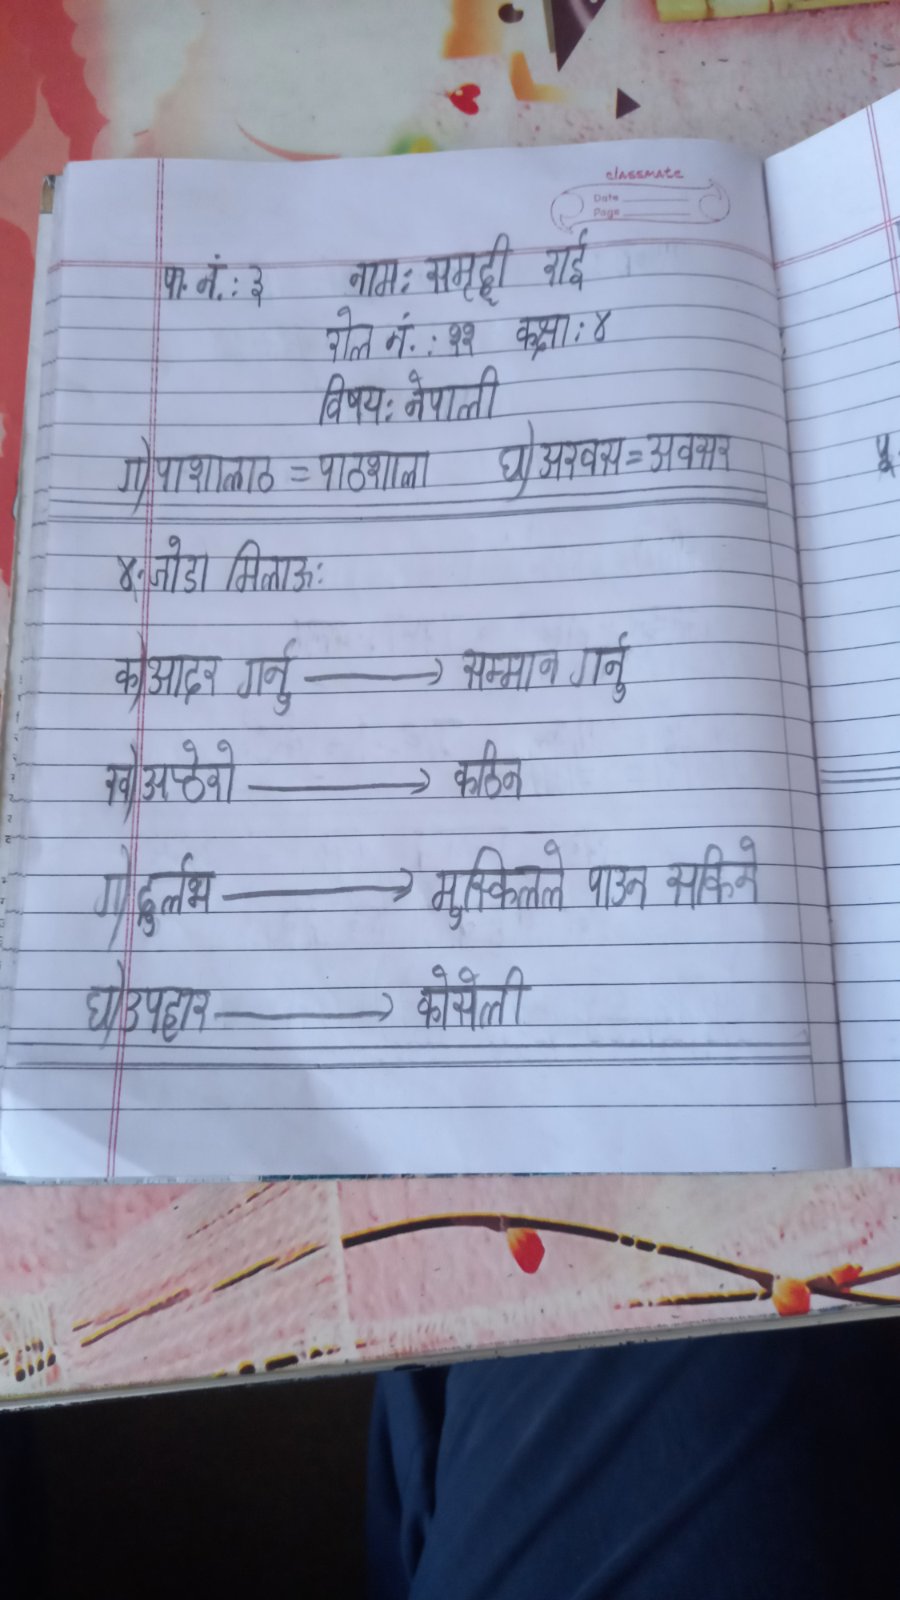 classmate
Date
Page
पा. नं.: ३ नाम: समृद्दी राई
रोल नं.: २२ कक्षा: ४
विषय: नेपाली
ग) पाशालाठ = पाठशाला घ) अरवस = अवसर
४. जोडा मिलाऊ:
क) आदर गर्नु → सम्मान गर्नु
ख) अप्ठेरो → कठिन
ग) दुर्लभ → मुस्किलले पाउन सकिने
घ) उपहार → कोसेली